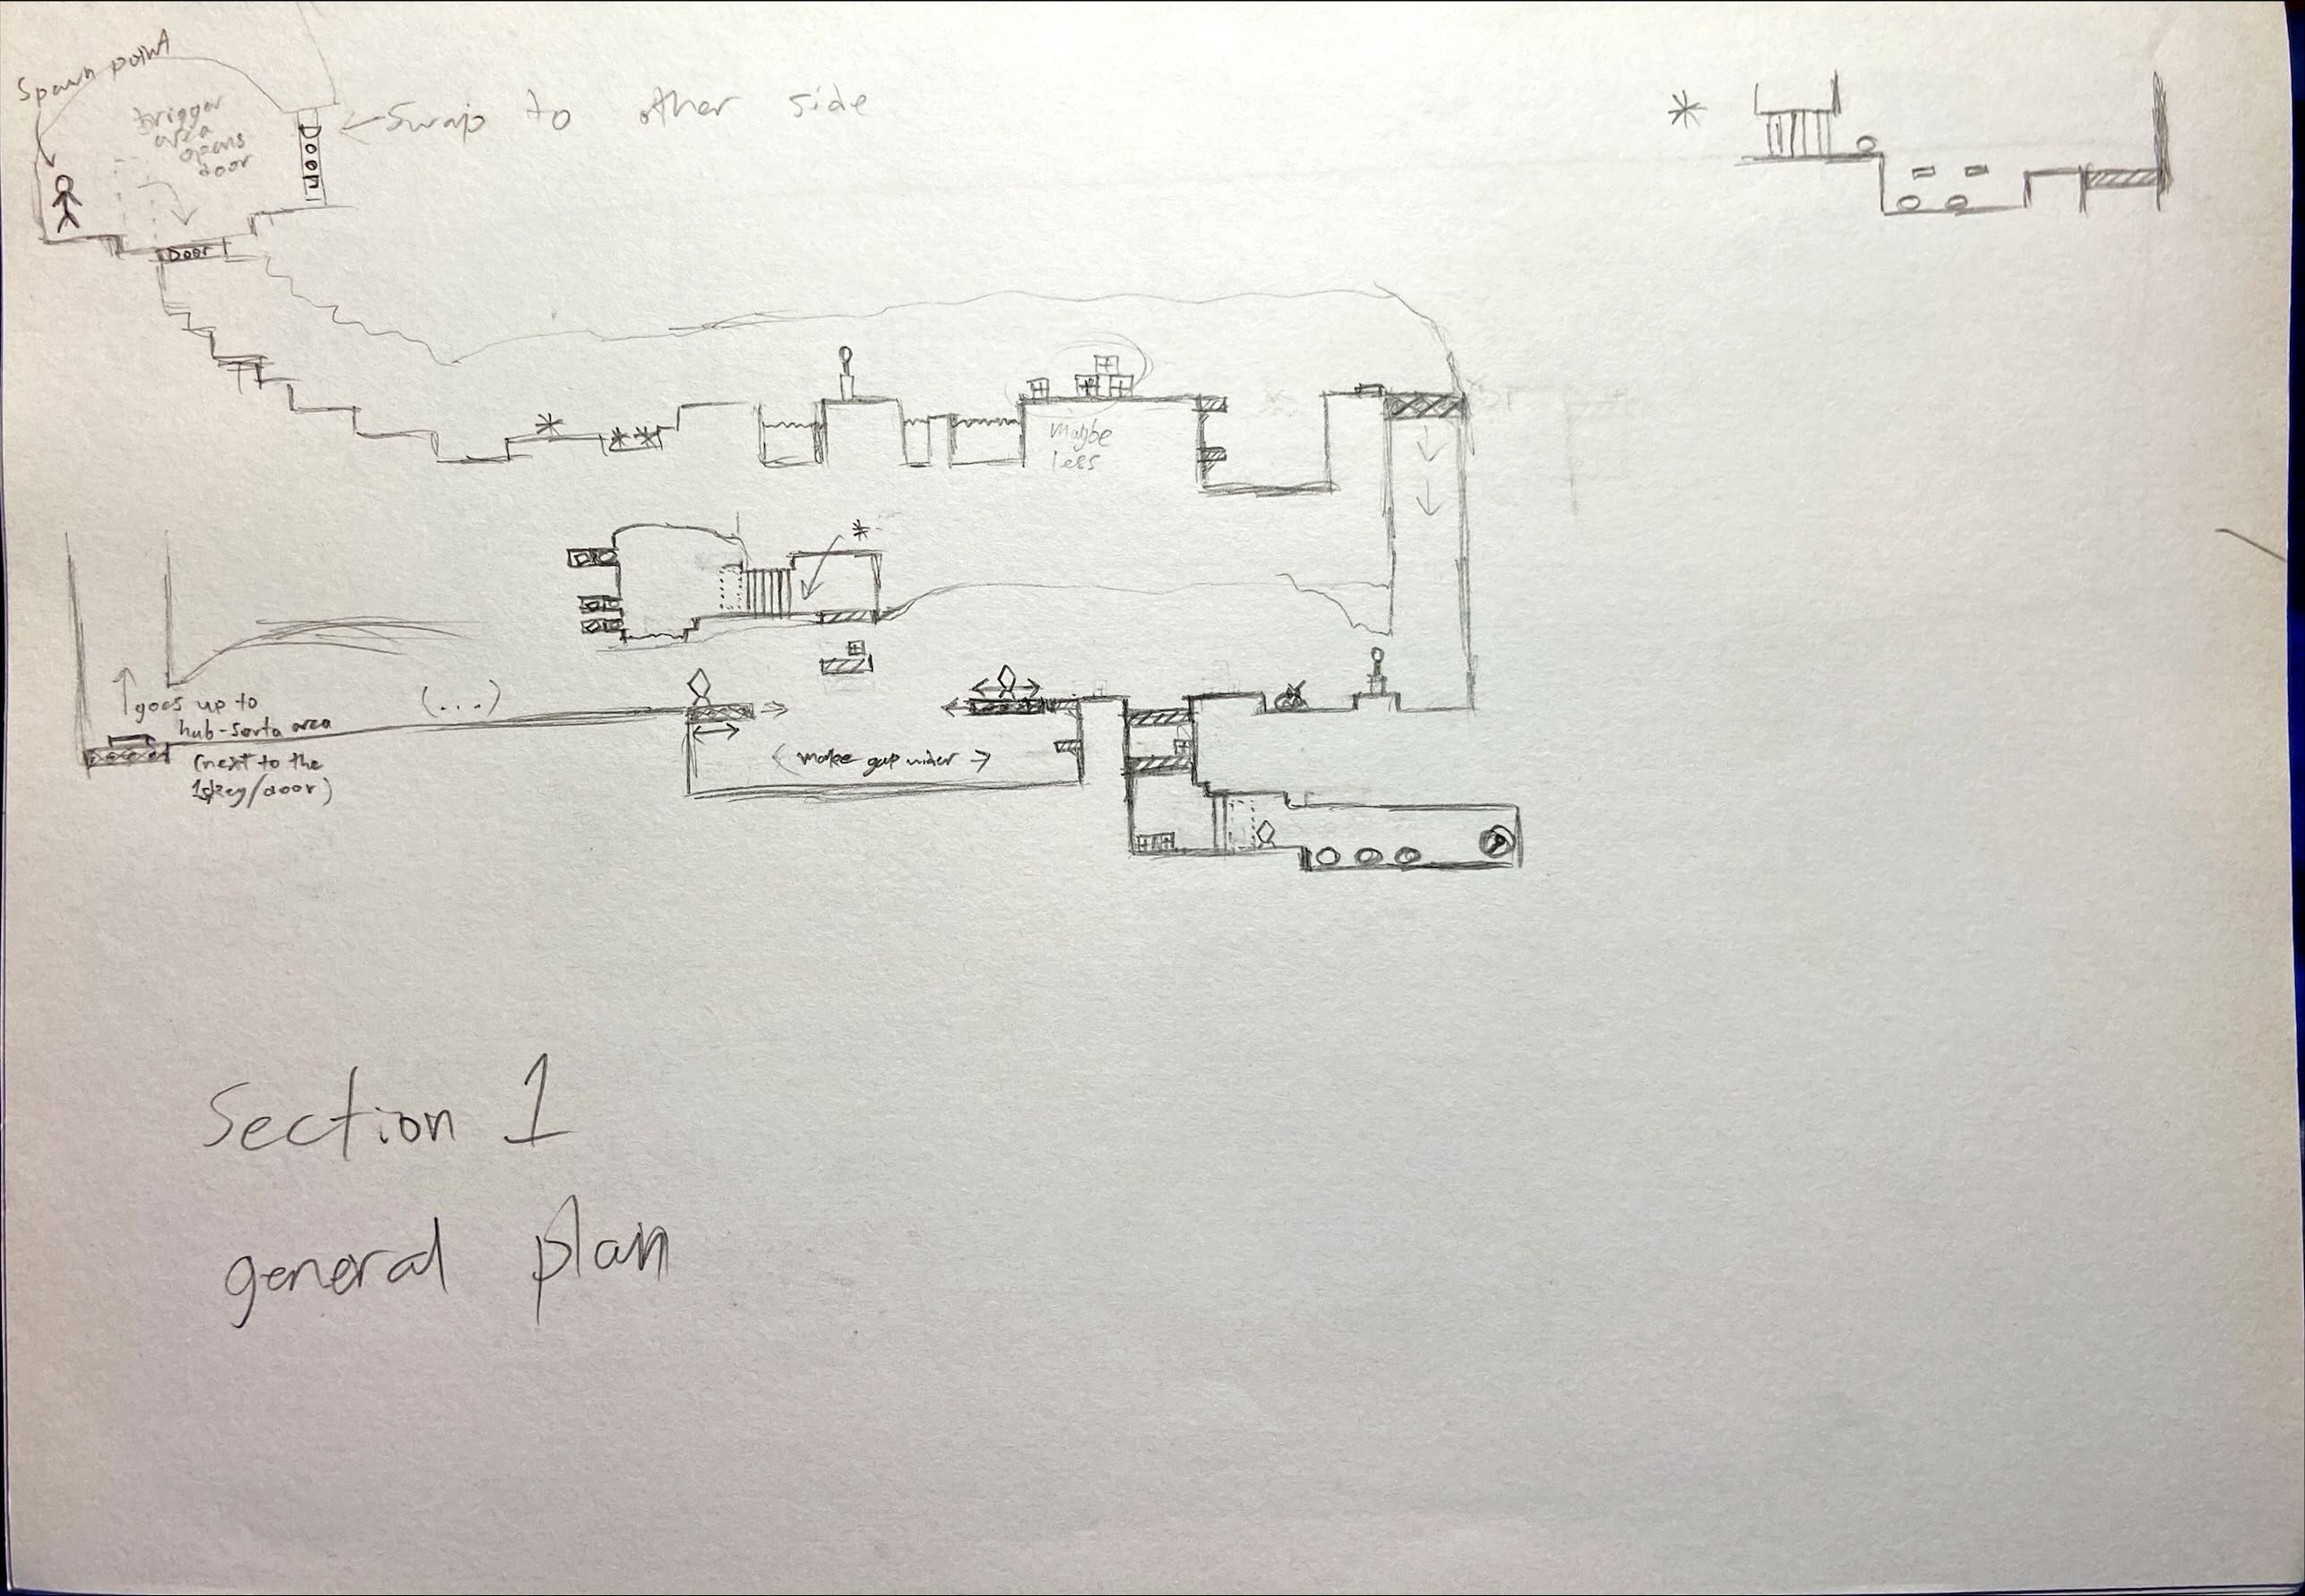 Spawn point
trigger
area
opens
door
Door
Swap to other side
Door
*
*
* *
maybe
less
*
goes up to
hub-sorta area
(next to the
1st key/door)
(...)
< make gap wider >
Section 1
general plan